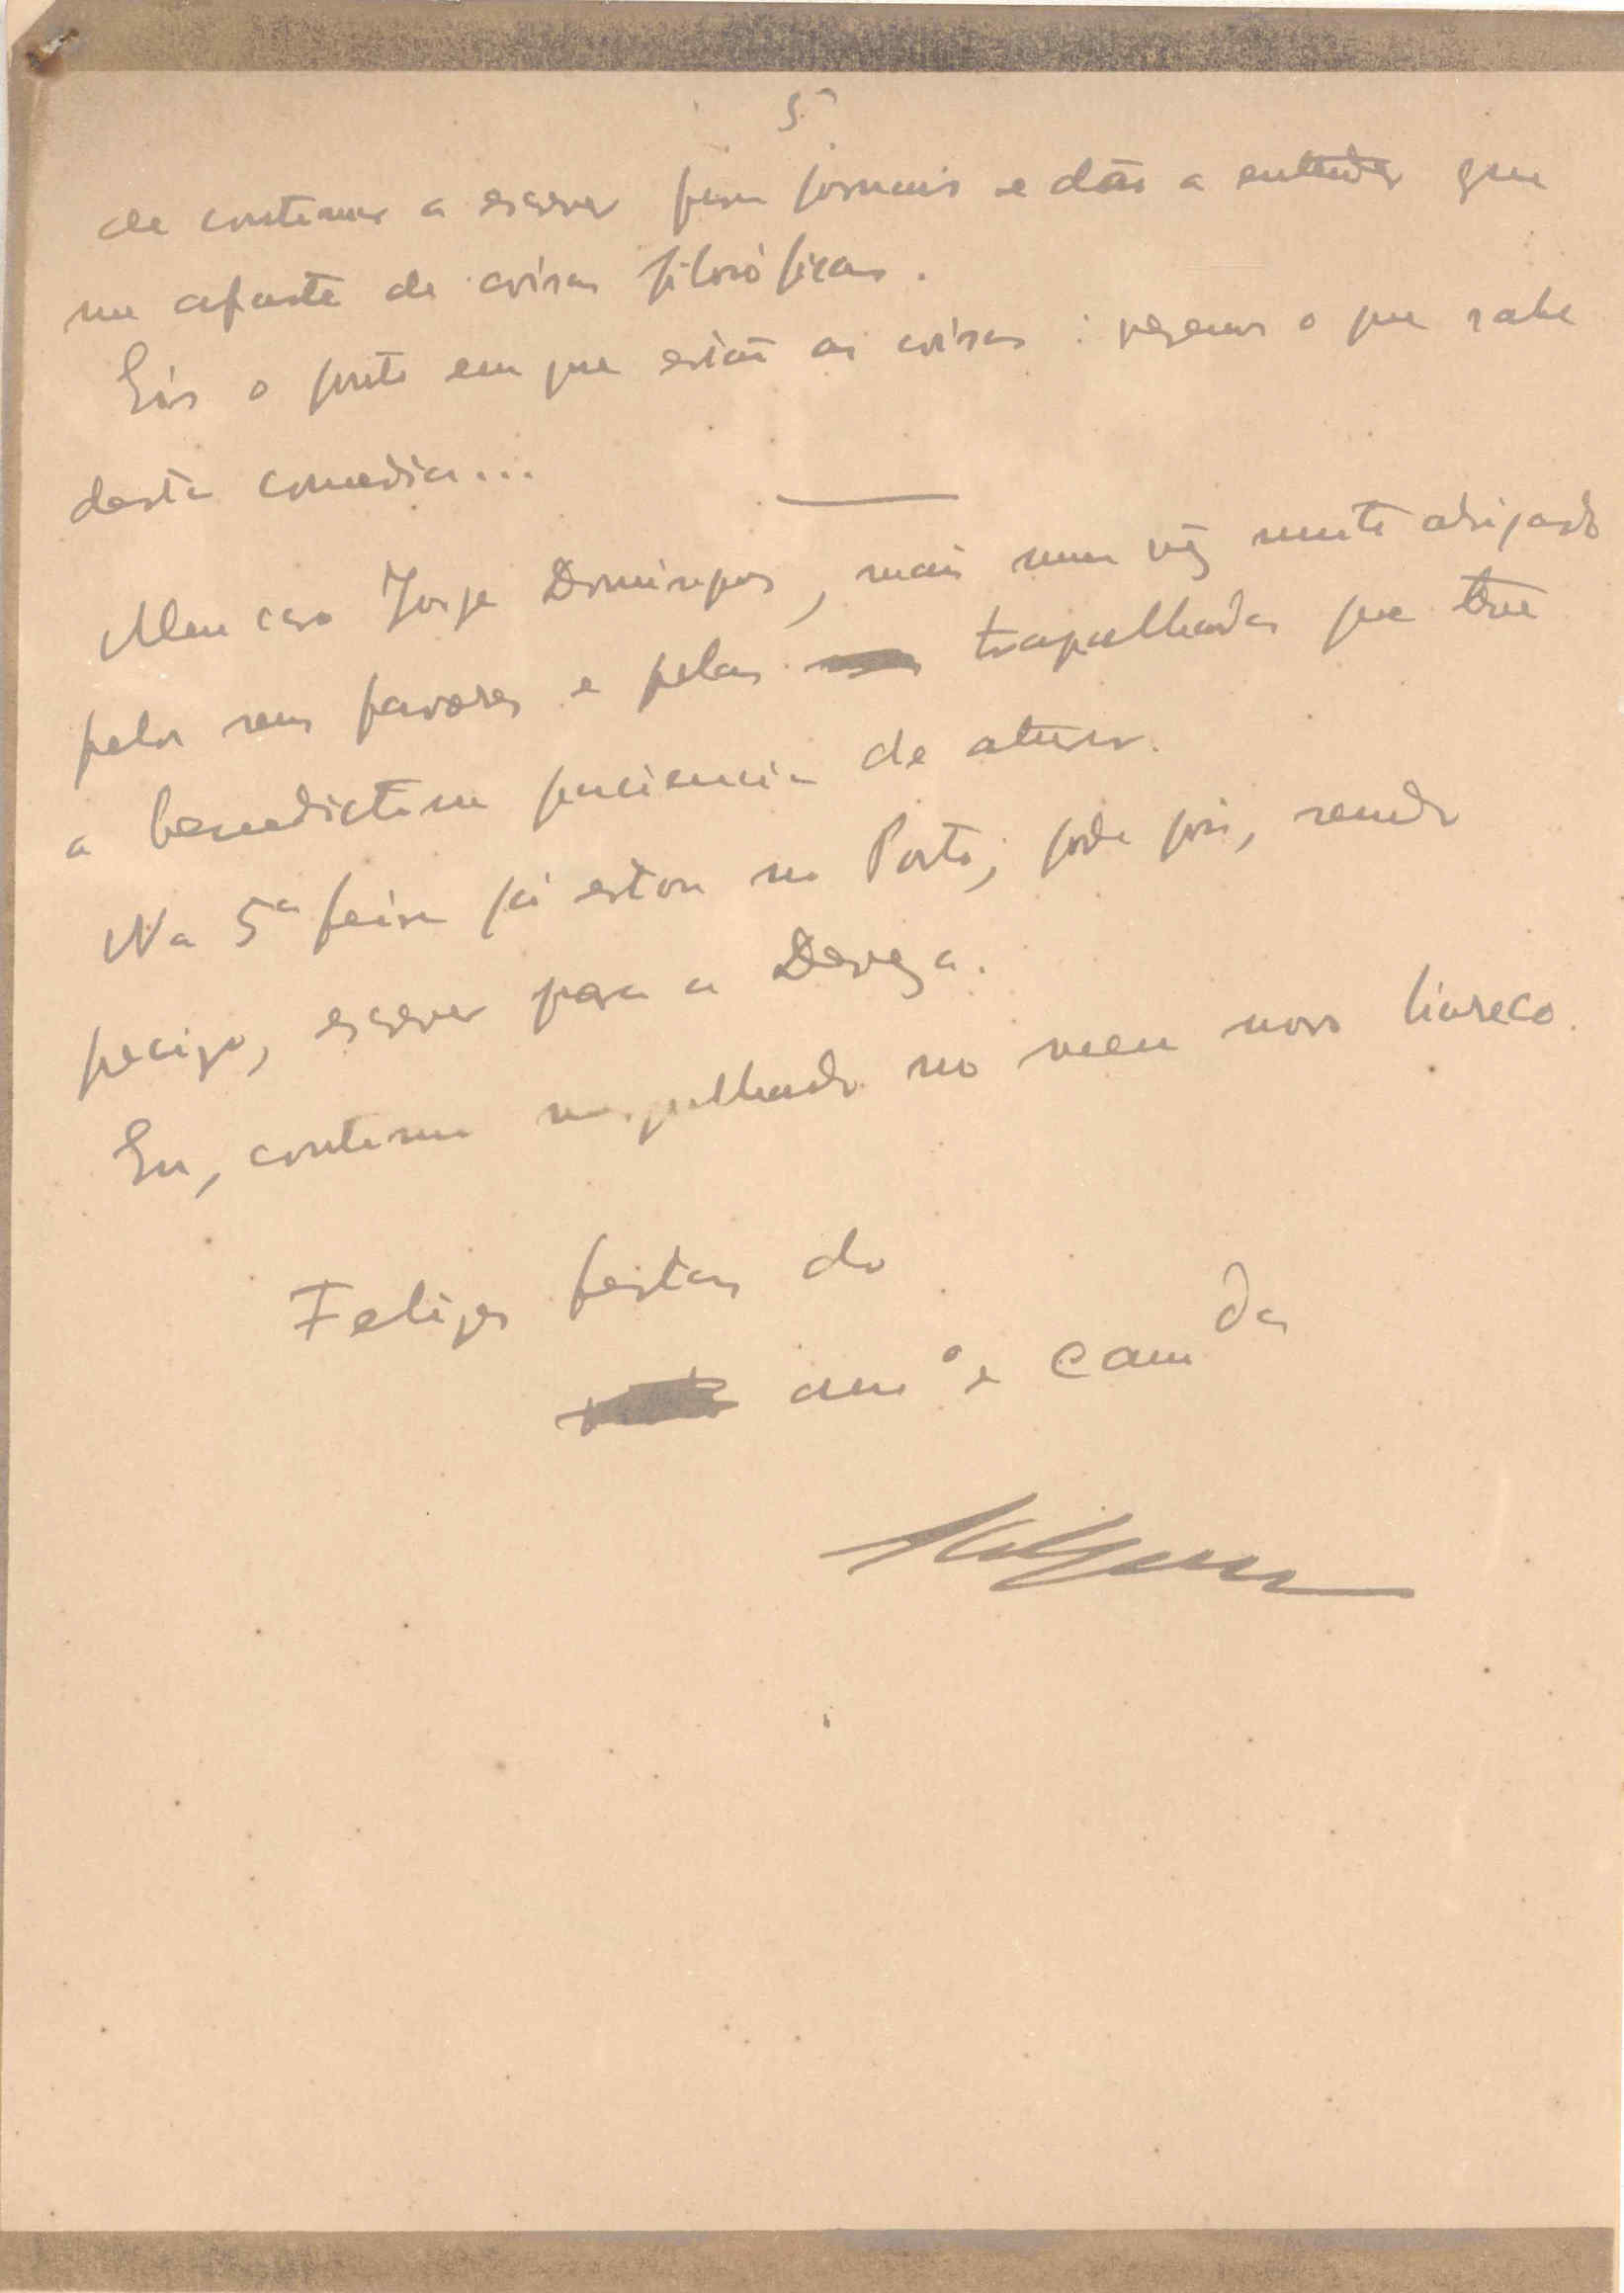 5
de continuar a escrever para jornais e dão a entender que
me afaste de coisas filosóficas.
Eis o ponto em que estão as coisas: vejamos o que sabe
desta comedia...
Meu caro Jorge Domingues, mais uma vêz muito obrigado
pelos seus favores e pelas trapalhadas que teve
a benedictina paciencia de aturar.
Na 5ª feira já estou no Porto; pode pois, sendo
preciso, escrever para a Deveza.
Eu, continuo mergulhado no meu novo livreco.
Felizes festas do
amº e cam da